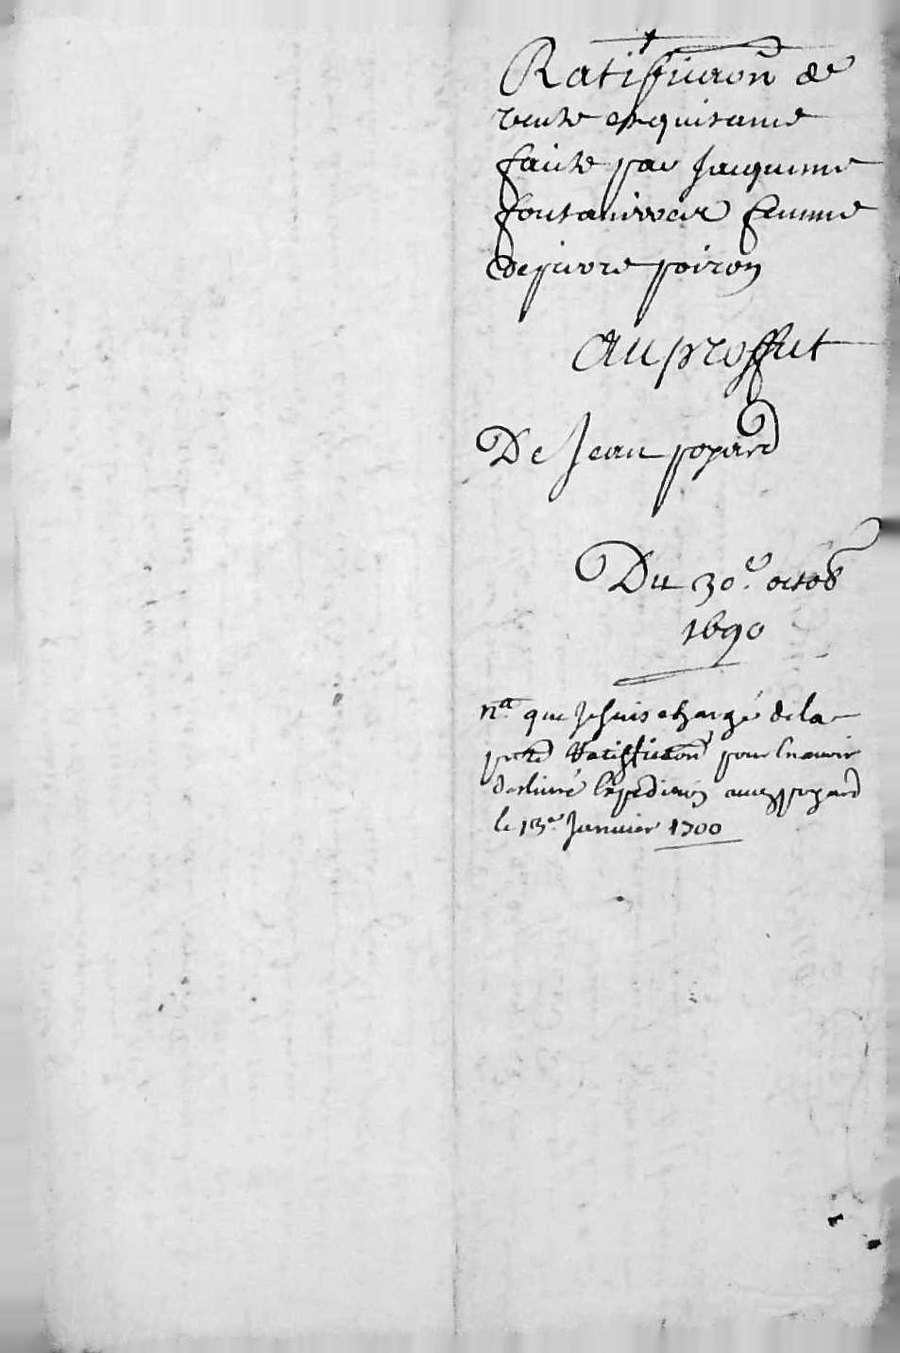 Ratiffica͠on de
vente et quitance
faitte par Jacquemine
femme
de pierre poiron
Au proffit
De Jean poyard
Du 30.e octob
1690
na. que Je suis chargé de la
pnte Ratiffica͠on pour En avoir
deslivré lexpedition audt poyard
le 13.e Janvier 1700